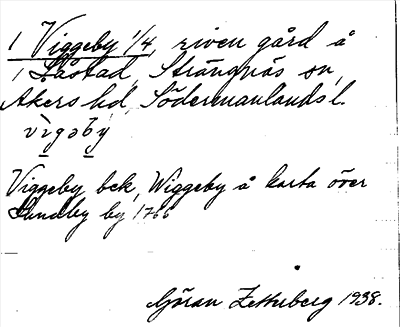 1 Viggeby 1/4, riven gård å
1 Låstad, Strängnäs sn,
Åkers hd, Södermanlands l.
vìgəby
Viggeby bek, Wiggeby å karta över
Sundby by 1766
Göran Zetterberg 1938.